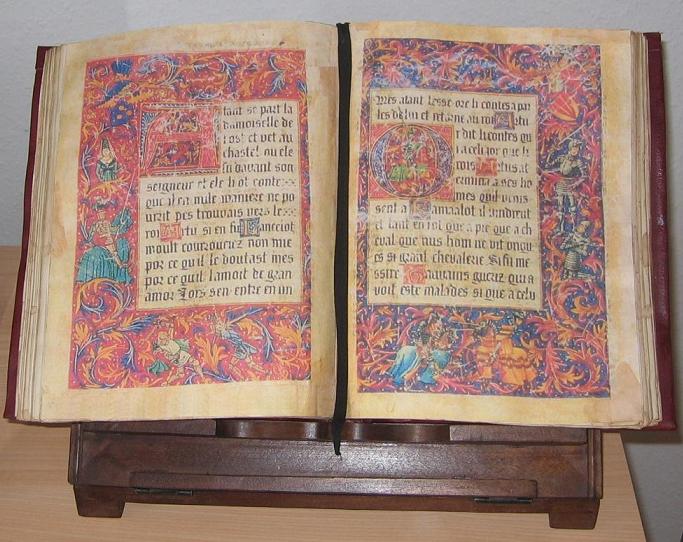 taut se part la
damoiselle de
lost et vet au
chastel ou ele
seigneur et ele li ot conte
que il en nule maniere ne po
urrit pes trouvaïs vers le
roi Artu si en fu Lanceiot
moult courouciez non mie
por ce quil le doutast mes
por ce quil lamoit de gran
amor Lors sen entre en un
Mes atant lesse ore li contes a par
les de lui et retorne au roi Artu
r dit li contes qu
a celi jor que li
rois Artus at
termina a ses ho
mes qui vinis
sent a Camaalot il vindrent
et tant en i ot que a pie que a ch
eval que nus hom ne vit onqu
es si grant chevalerie Si fu me
ssire Gauvains gueriz qui a
voit este malades si que a celui